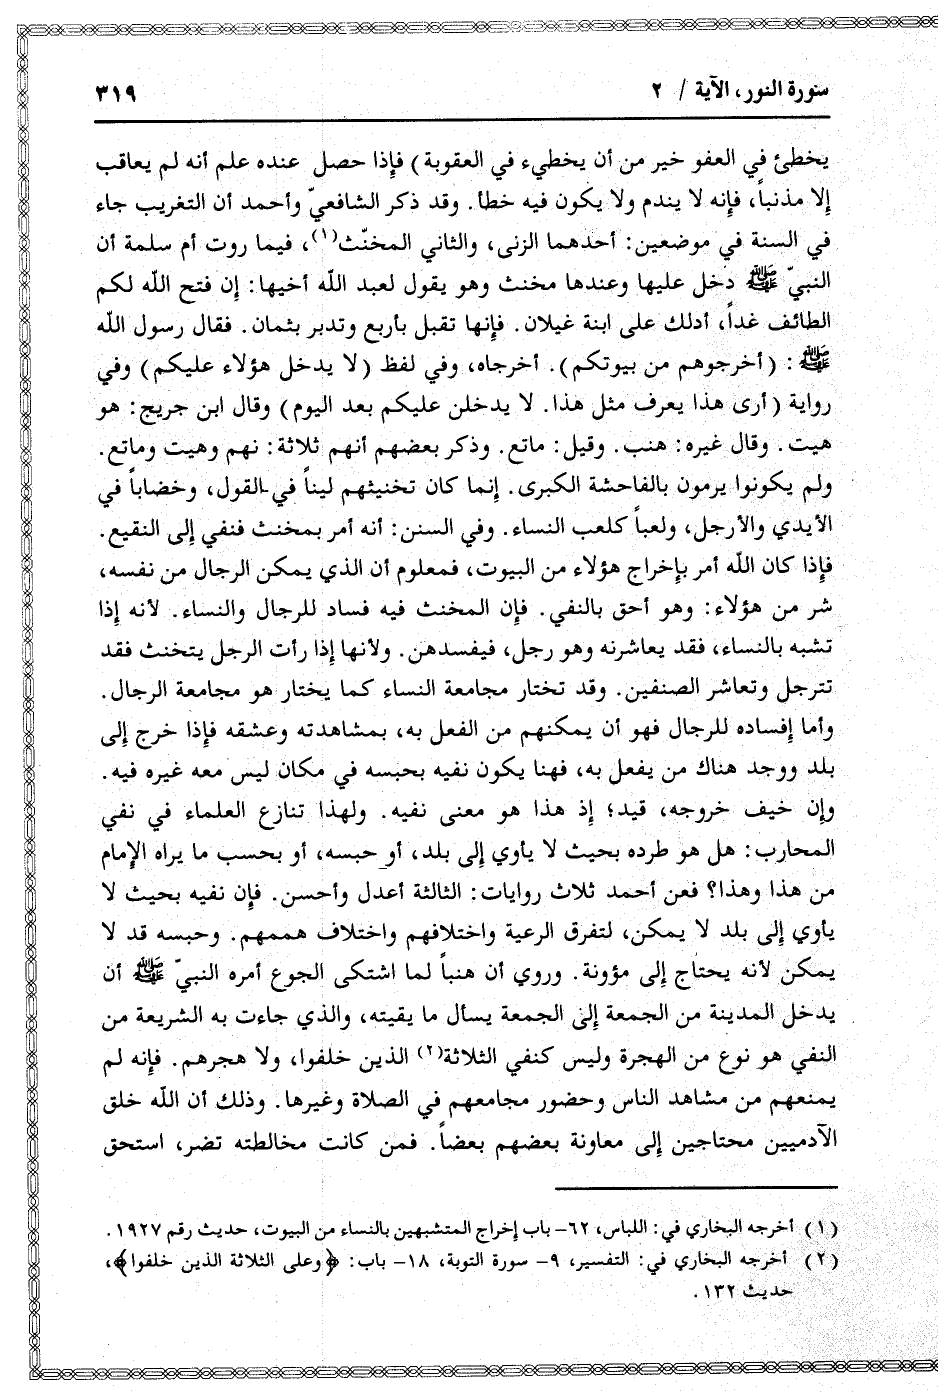 سورة النور، الآية / ٢
٣١٩
يخطئ في العفو خير من أن يخطيء في العقوبة) فإذا حصل عنده علم أنه لم يعاقب
إلا مذنباً، فإنه لا يندم ولا يكون فيه خطأ. وقد ذكر الشافعيّ وأحمد أن التغريب جاء
في السنة في موضعين: أحدهما الزنى، والثاني المخنّث(١)، فيما روت أم سلمة أن
النبيّ ﷺ دخل عليها وعندها مخنث وهو يقول لعبد الله أخيها: إن فتح الله لكم
الطائف غداً، أدلك على ابنة غيلان. فإنها تقبل بأربع وتدبر بثمان. فقال رسول الله
ﷺ: (أخرجوهم من بيوتكم). أخرجاه، وفي لفظ (لا يدخل هؤلاء عليكم) وفي
رواية (أرى هذا يعرف مثل هذا. لا يدخلن عليكم بعد اليوم) وقال ابن جريج: هو
هيت. وقال غيره: هنب. وقيل: ماتع. وذكر بعضهم أنهم ثلاثة: نهم وهيت وماتع.
ولم يكونوا يرمون بالفاحشة الكبرى. إنما كان تخنيثهم ليناً في القول، وخضاباً في
الأيدي والأرجل، ولعباً كلعب النساء. وفي السنن: أنه أمر بمخنث فنفي إلى النقيع.
فإذا كان الله أمر بإخراج هؤلاء من البيوت، فمعلوم أن الذي يمكن الرجال من نفسه،
شر من هؤلاء: وهو أحق بالنفي. فإن المخنث فيه فساد للرجال والنساء. لأنه إذا
تشبه بالنساء، فقد يعاشرنه وهو رجل، فيفسدهن. ولأنها إذا رأت الرجل يتخنث فقد
تترجل وتعاشر الصنفين. وقد تختار مجامعة النساء كما يختار هو مجامعة الرجال.
وأما إفساده للرجال فهو أن يمكنهم من الفعل به، بمشاهدته وعشقه فإذا خرج إلى
بلد ووجد هناك من يفعل به، فهنا يكون نفيه بحبسه في مكان ليس معه غيره فيه.
وإن خيف خروجه، قيد؛ إذ هذا هو معنى نفيه. ولهذا تنازع العلماء في نفي
المحارب: هل هو طرده بحيث لا يأوي إلى بلد، أو حبسه، أو بحسب ما يراه الإمام
من هذا وهذا؟ فعن أحمد ثلاث روايات: الثالثة أعدل وأحسن. فإن نفيه بحيث لا
يأوي إلى بلد لا يمكن، لتفرق الرعية واختلافهم واختلاف هممهم. وحبسه قد لا
يمكن لأنه يحتاج إلى مؤونة. وروي أن هنباً لما اشتكى الجوع أمره النبيّ ﷺ أن
يدخل المدينة من الجمعة إلى الجمعة يسأل ما يقيته، والذي جاءت به الشريعة من
النفي هو نوع من الهجرة وليس كنفي الثلاثة(٢) الذين خلفوا، ولا هجرهم. فإنه لم
يمنعهم من مشاهد الناس وحضور مجامعهم في الصلاة وغيرها. وذلك أن الله خلق
الآدميين محتاجين إلى معاونة بعضهم بعضاً. فمن كانت مخالطته تضر، استحق
(١) أخرجه البخاري في: اللباس، ٦٢- باب إخراج المتشبهين بالنساء من البيوت، حديث رقم ١٩٢٧.
(٢) أخرجه البخاري في: التفسير، ٩- سورة التوبة، ١٨- باب: ﴿وعلى الثلاثة الذين خلفوا﴾،
حديث ١٣٢.